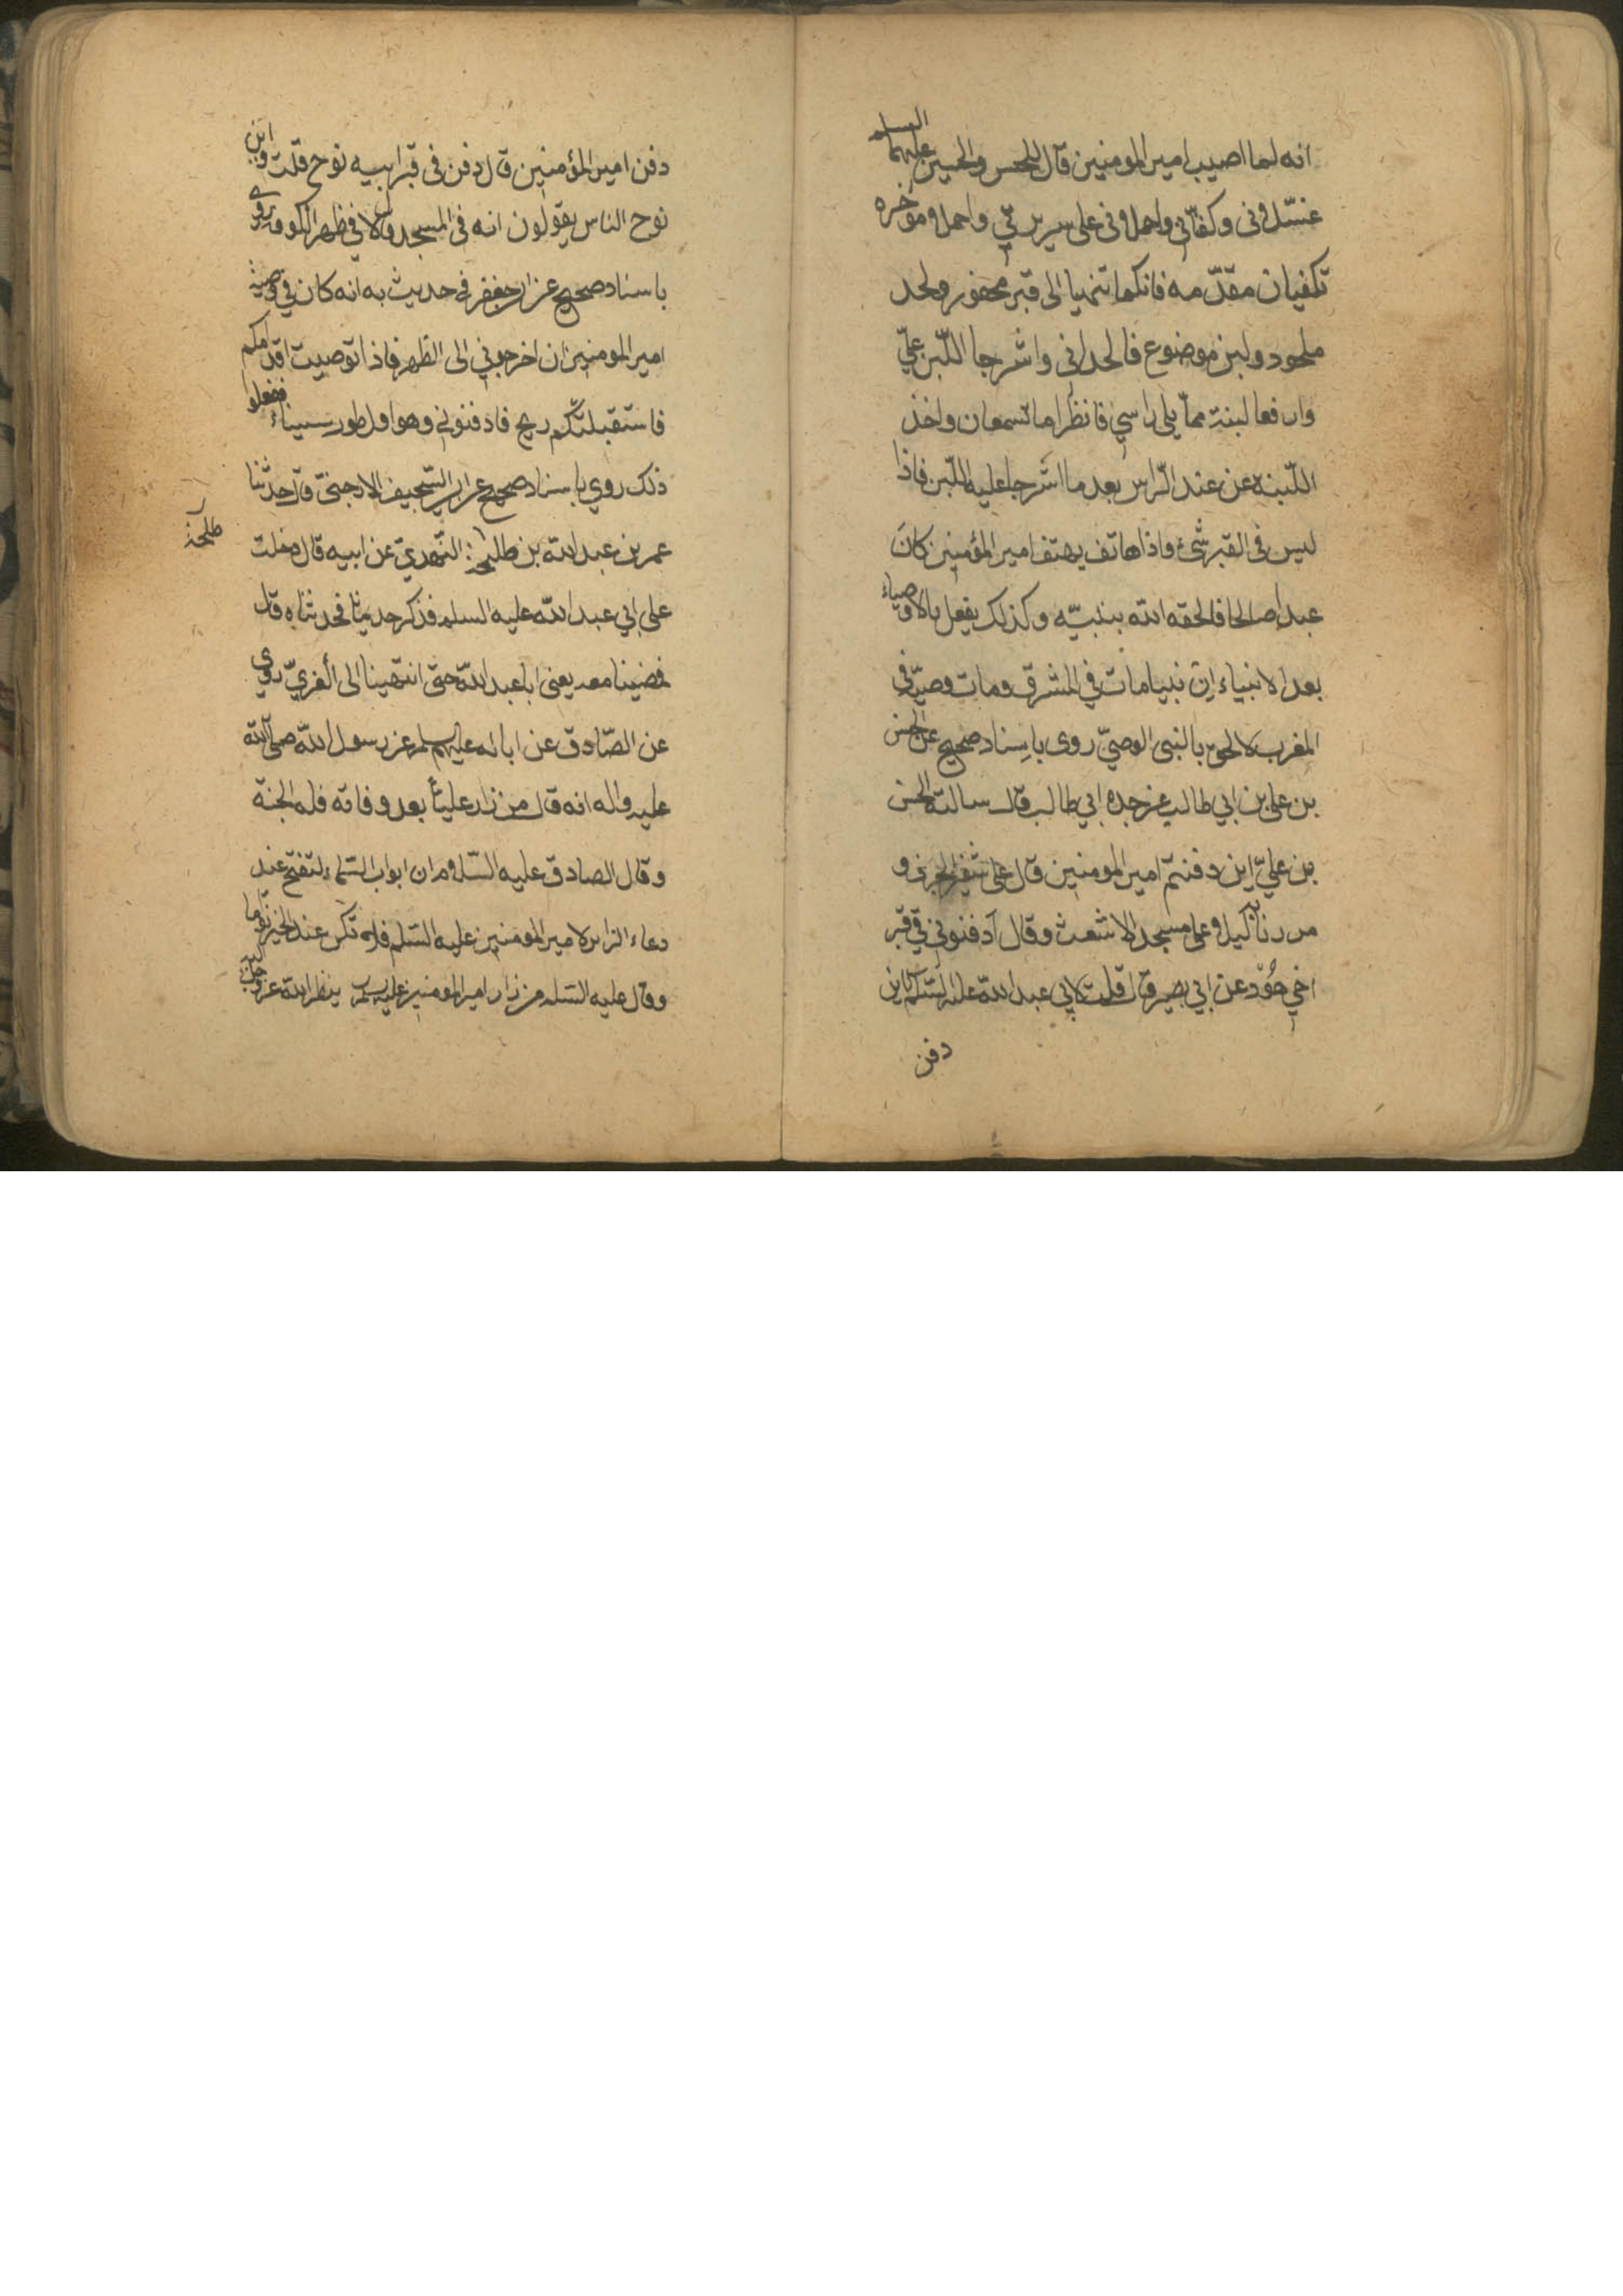 انه لما اصيب امير المومنين قال للحسن والحسين عليهما السلم
غسّلاونى وكفّنانى واحملاونى على سريرتي واحملا مؤخره
تكفيان مقدّمه فانكما تنتهيا الى قبر محفور ولحد
ملحود ولبن موضوع فالحدانى واشرجا اللّبن عليّ
وارفعا لبنة مما يلى راسي فانظرا ما تسمعان واخذ
اللّبنة عن عند الرّاس بعد ما اشرجا عليه اللّبن فاذا
ليس فى القبر شئ واذا هاتف يهتف امير المؤمنين كان
عبدا صالحا فالحقه الله بنبيّه وكذلك يفعل بالاوصياء
بعد الانبياء انّ نبيا مات في المشرق ومات وصيّه في
المغرب لالحق بالنبى الوصيّ روى باسناد صحيح عن الحسن
بن على بن ابي طالب عن جده ابي طالب قال سالت الحسن
بن عليّ اين دفنتم امير المومنين قال على شفير الجرف و
مررنا به ليلا على مسجد الاشعث وقال ادفنونى في قبر
اخي هُوّد عن ابي بصير قال قلت لابي عبد الله عليه السّلم اين
دفن
دفن امير المؤمنين قال دفن فى قبر ابيه نوح قلت واين
نوح الناس يقولون انه فى المسجد قال لا في ظهر الكوفة روي
باسناد صحيح عن ابي جعفر في حديث به انه كان في وصية
امير المومنين ان اخرجونى الى الظهر فاذا توصبت اقدامكم
فاستقبلتكم ريح فادفنونى وهو اول طور سيناء ففعلوا
ذلك روي باسناد صحيح عن ابي السّحيف الارجنىّ قال حدثنا
عمر بن عبد الله بن طلحة النّهدىّ عن ابيه قال دخلت
طلحة
على ابي عبد الله عليه السلم فذكر حديثا فحدثناه قال
فمضينا معه يعنى ابا عبد الله حتى انتهينا الى الغريّ روي
عن الصّادق عن ابائه عليهم السلم عن رسول الله صلى الله
عليه واله انه قال من زار عليّا بعد وفاته فله الجنة
وقال الصادق عليه السّلام ان ابواب السّماء لتفتح عند
دعاء الزائر لامير المومنين عليه السّلم فلا تكن عند الخير نوّاما
وقال عليه السّلم من زار امير المومنين عليه السلم ينظر الله عزوجل